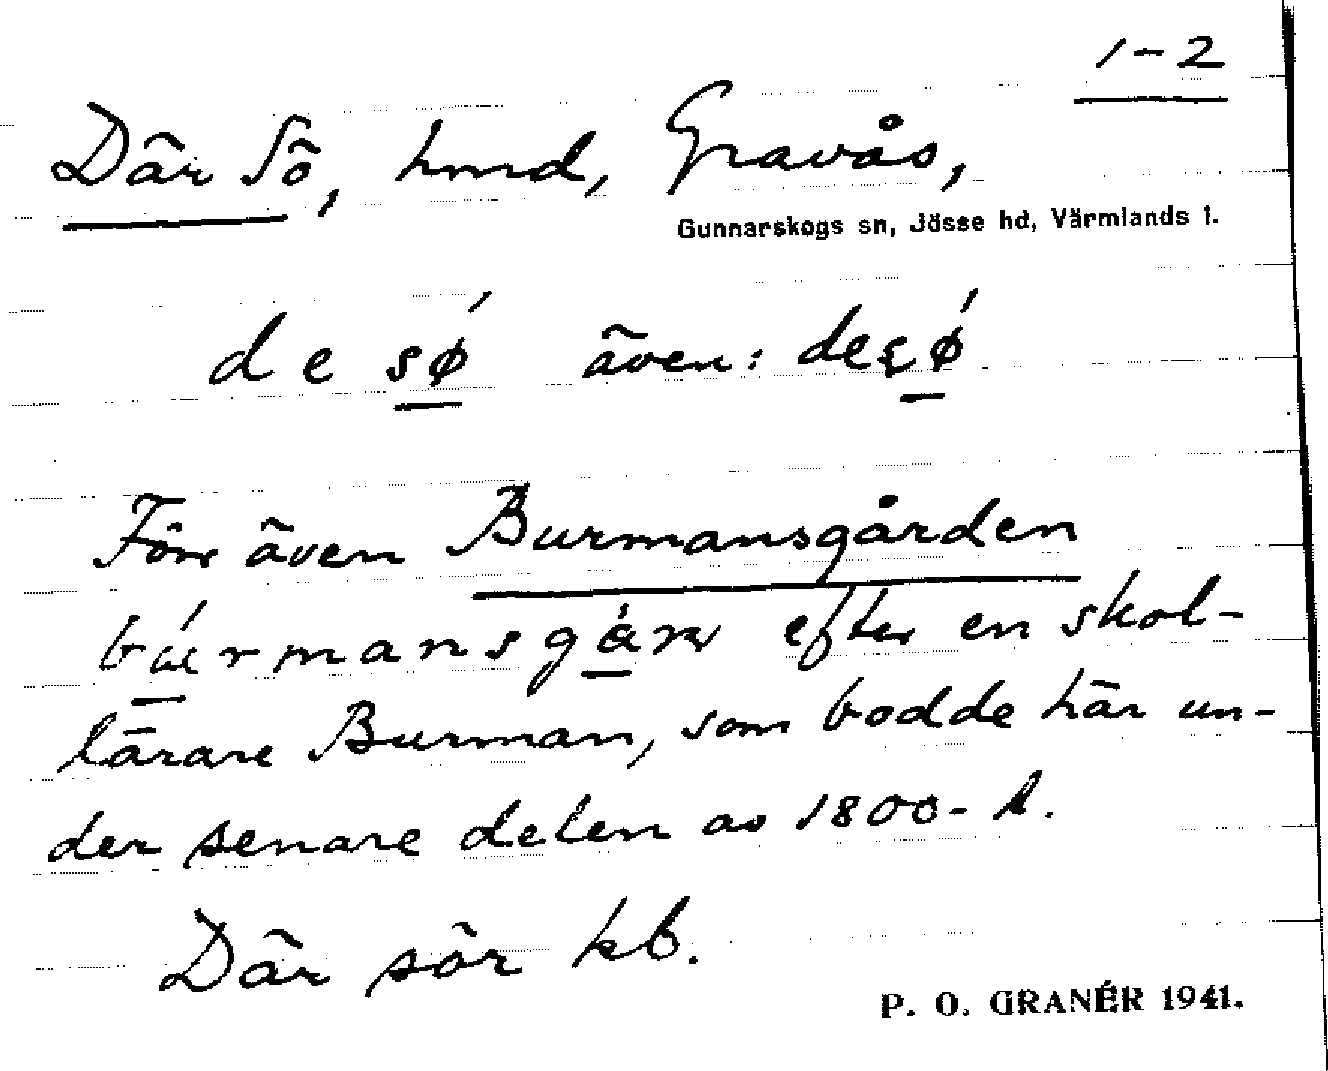 1-2
Där Sö, hmd, Gravås,
Gunnarskogs sn, Jösse hd, Värmlands l.
de sǿ även: deʂǿ
Förr även Burmansgården
búrmansgàɳ efter en skol-
lärare Burman, som bodde här un-
der senare delen av 1800-t.
Där sör kb.
P. O. GRANÉR 1941.